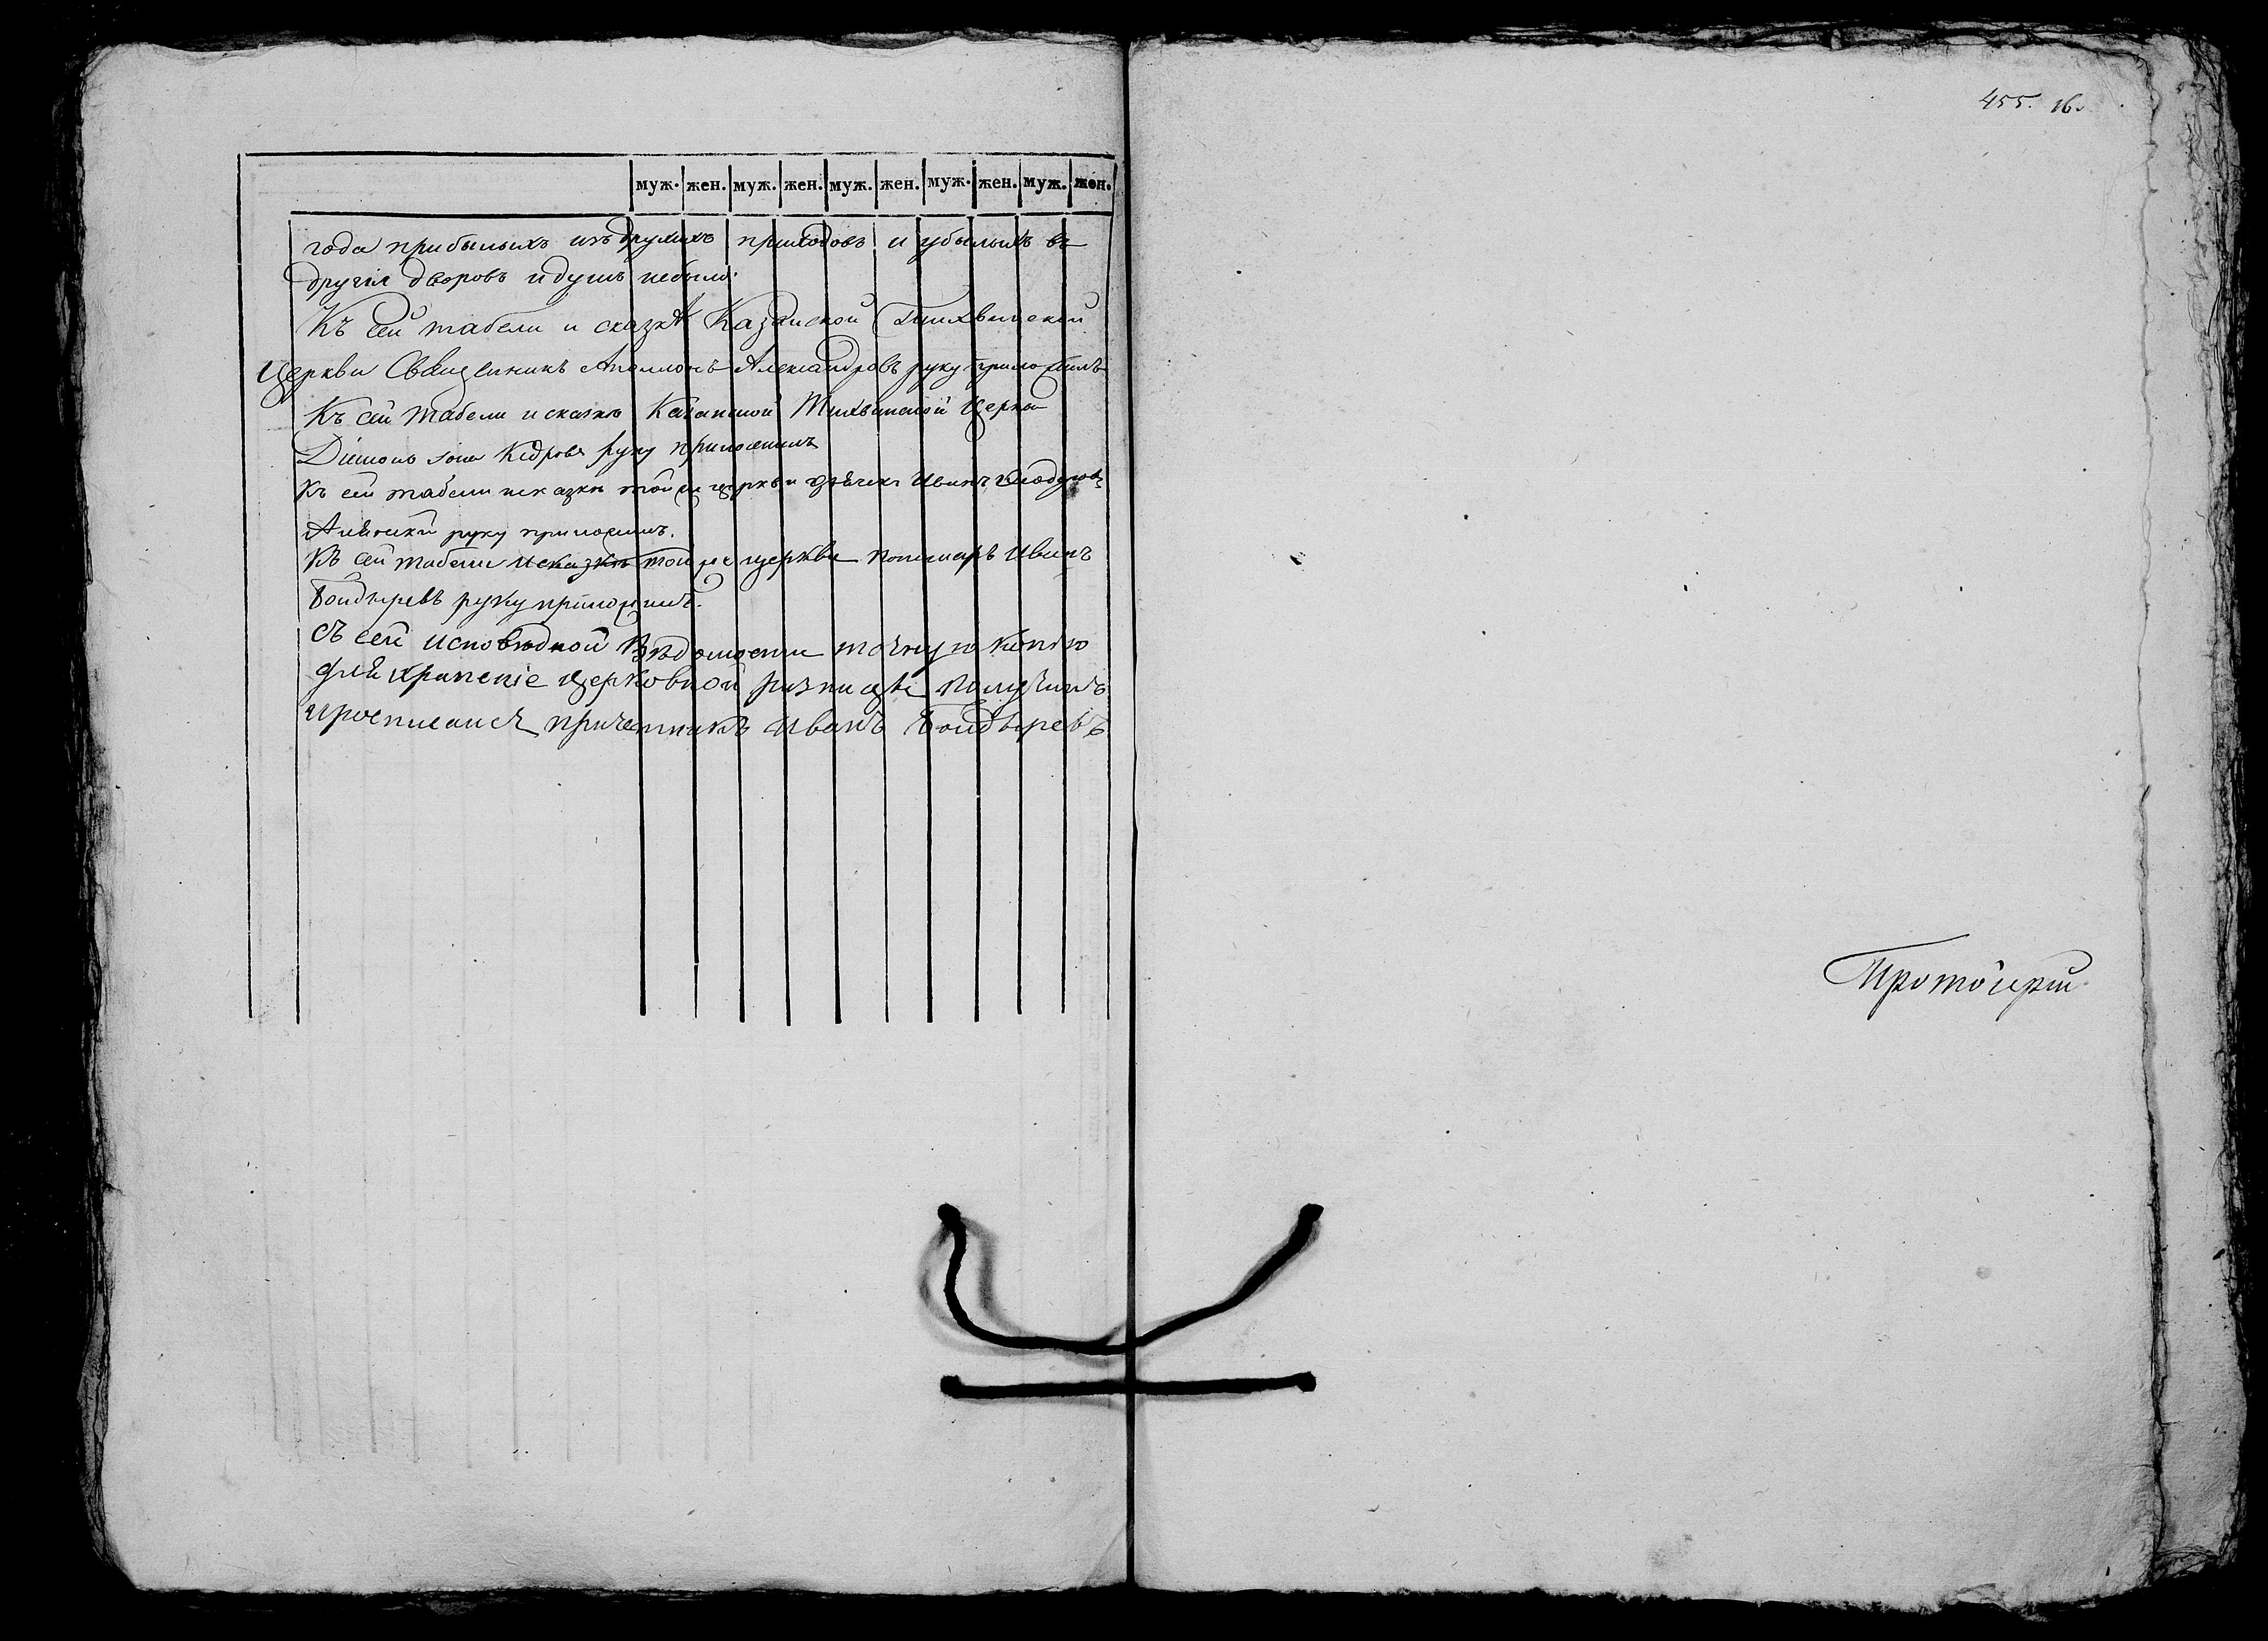 муж. жен. муж. жен. муж. жен. муж. жен. муж. жен.
года прибылыхъ изъ другихъ приходовъ и убылыхъ въ
другія дворовъ и душъ небыло.
Къ сей табели и сказкѣ Казанской Тихвинской
Церкви Священникъ Аполлонъ Александровъ руку приложилъ
Къ сей табели и сказкѣ Казанской Тихвинской Церкви
Діаконъ Іона Кедровъ руку приложилъ
Къ сей табели и сказкѣ той же церкви дьячекъ Иванъ
руку приложилъ.
Къ сей табели и сказкѣ той же церкви пономарь Иванъ
Бондыревъ руку приложилъ.
Съ сей исповѣдной Вѣдомости точную копію
для храненіе церковной ризницѣ получилъ
и росписался причетникъ Иванъ Бондыревъ
455. 16.
Протоіерій